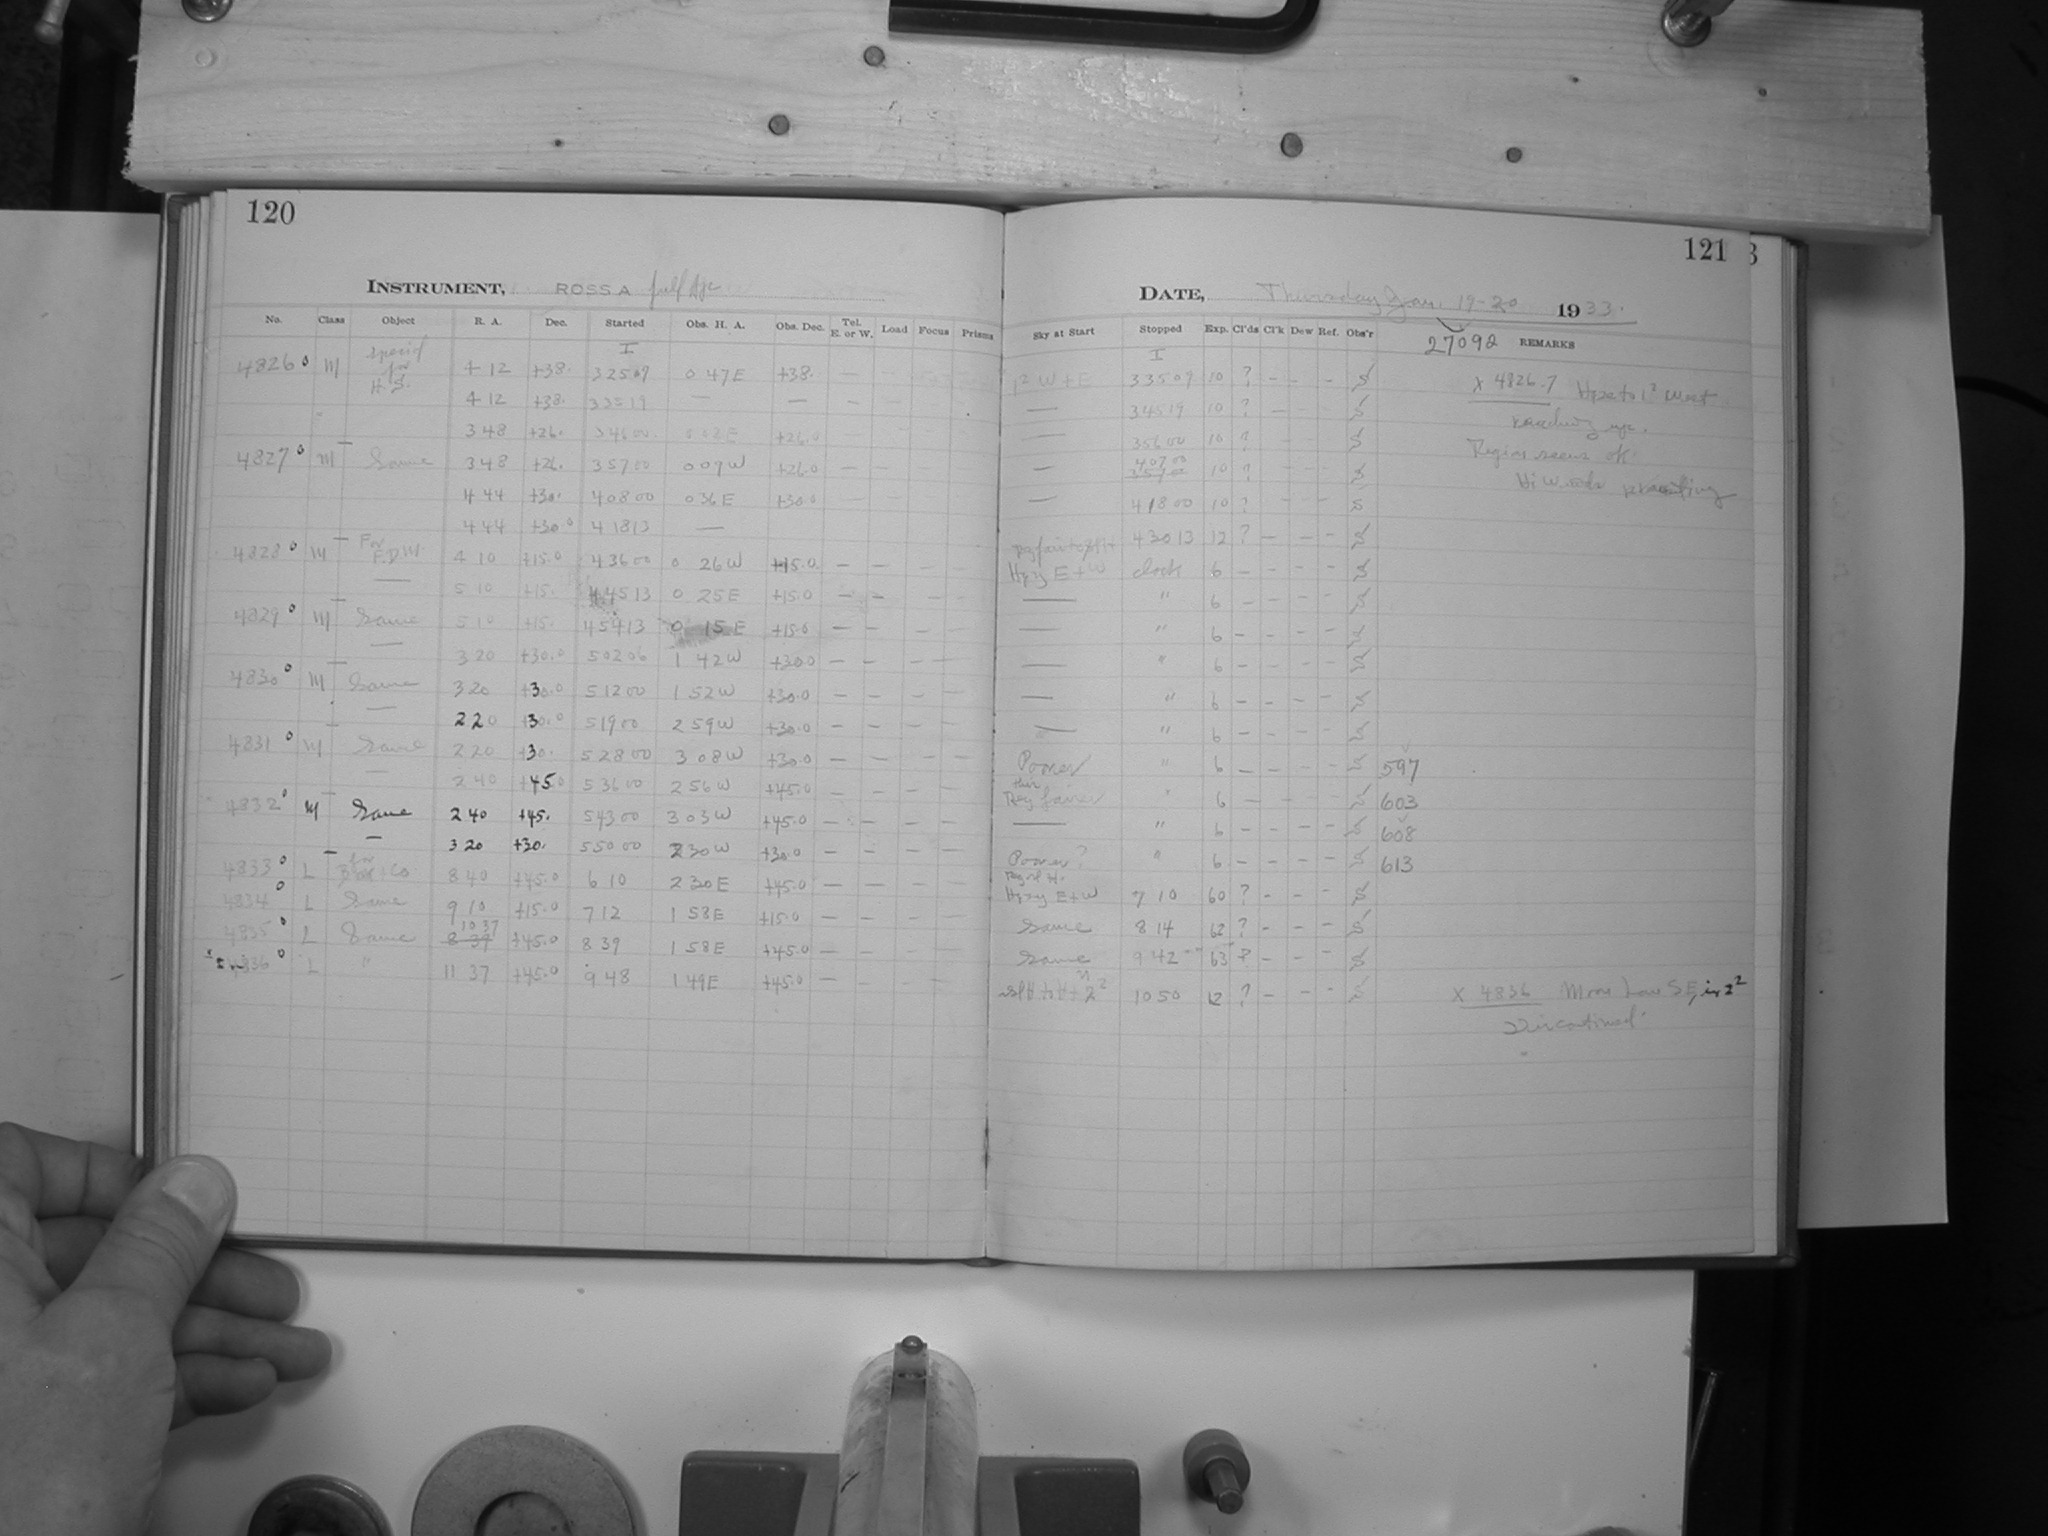 120
INSTRUMENT, ROSS A full Apr
No. Class Object R. A. Dec. Started Obs. H. A. Obs. Dec. Tel. E. or W. Load Focus Prisms
I
4826 M special for H.S. 4 12 +38. 32509 0 47E +38. — —
4 12 +38. 33519 — —
3 48 +26. 34600 0 02E +26.0
4827 M Same 3 48 +26. 35700 0 09W +26.0 — —
4 44 +30. 40800 0 36E +30.0
4 44 +30.0 41813 —
4828 M For 4 10 +15.0 43600 0 26W +15.0 — — — —
— 5 10 +15. 44513 0 25E +15.0 — — — —
4829 M Same 5 10 +15. 45413 0 15E +15.0 — — — —
— 3 20 +30.0 50206 1 42W +30.0 — — — —
4830 M Same 3 20 +30.0 51200 1 52W +30.0 — — — —
— 2 20 +30.0 51900 2 59W +30.0 — — — —
4831 M Same 2 20 +30. 52800 3 08W +30.0 — — — —
— 2 40 +45.0 53600 2 56W +45.0 — — — —
4832 M Same 2 40 +45. 54300 3 03W +45.0 — — — —
— 3 20 +30. 55000 2 30W +30.0 — — — —
4833 L for 8 40 +45.0 6 10 2 30E +45.0 — — — —
4834 L Same 9 10 +15.0 7 12 1 58E +15.0 — — — —
4835 L Same 8 37 10 37 +45.0 8 39 1 58E +45.0 — — — —
4836 L " 11 37 +45.0 9 48 1 49E +45.0 — — — —
121
DATE, Thursday Jan. 19-20 1933.
27092 REMARKS
Sky at Start Stopped Exp. Cl'ds Cl'k Dew Ref. Obs'r
I
1² W+E 33509 10 ? – – – S
— 34519 10 ? – – – S
— 35600 10 ? S
— 35700 40700 10 ? S
— 41800 10 ? – – – S
43013 12 ? – – – S
Hazy E+W clock 6 – – – – S
— " 6 – – – – S
— " 6 – – – – S
— " 6 – – – – S
— " 6 – – – – S
— " 6 – – – – S
Poorer " 6 – – – – S 597
" 6 – – – – S 603
— " 6 – – – – S 608
Poorer? " 6 – – – – S 613
Hazy E+W 7 10 60 ? – – – S
Same 8 14 62 ? – – – S
Same 9 42 63 ? – – – S
10 50 12 ? – – – S
X 4826-7 Haze to 1² West
reaching up.
Region seems ok
Hi winds
X 4836 Moon Low SE, in 2²
Discontinued